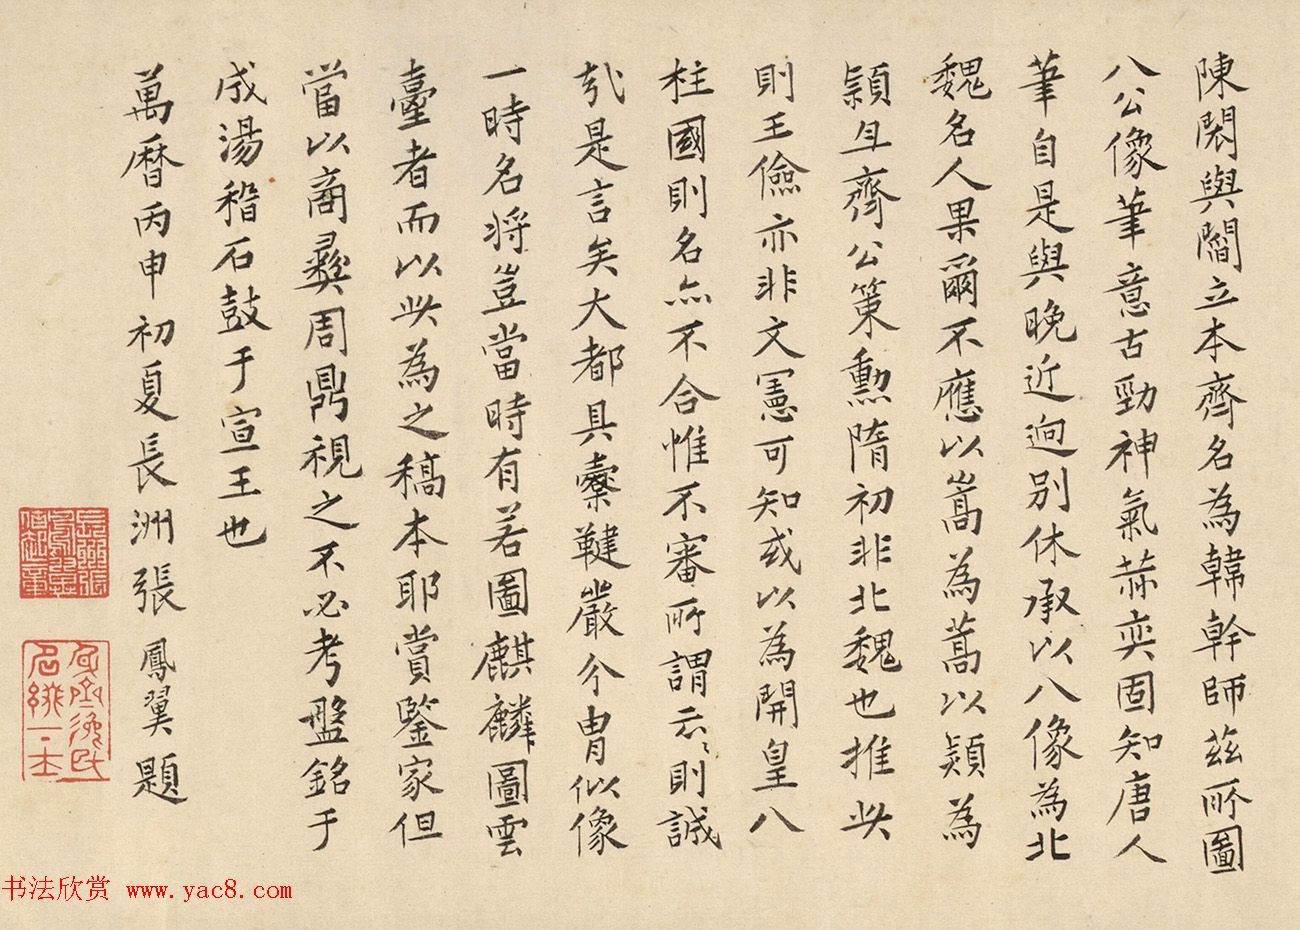 陳閎與閻立本齊名為韓幹師茲所圖
八公像筆意古勁神氣赫奕固知唐人
筆自是與晚近逈别休承以八像為北
魏名人果爾不應以嵩為蒿以熲為
頴且齊公策勲隋初非北魏也推此
則王儉亦非文憲可知或以為開皇八
柱國則名亦不合惟不審所謂云云則誠
哉是言矣大都具櫜鞬嚴介冑似像
一時名将豈當時有若圖麒麟圖雲
臺者而以此為之稿本耶賞鑒家但
當以商彝周鼎視之不必考盤銘于
成湯稽石鼓于宣王也
萬曆丙申初夏長洲張鳳翼題
书法欣赏 www.yac8.com